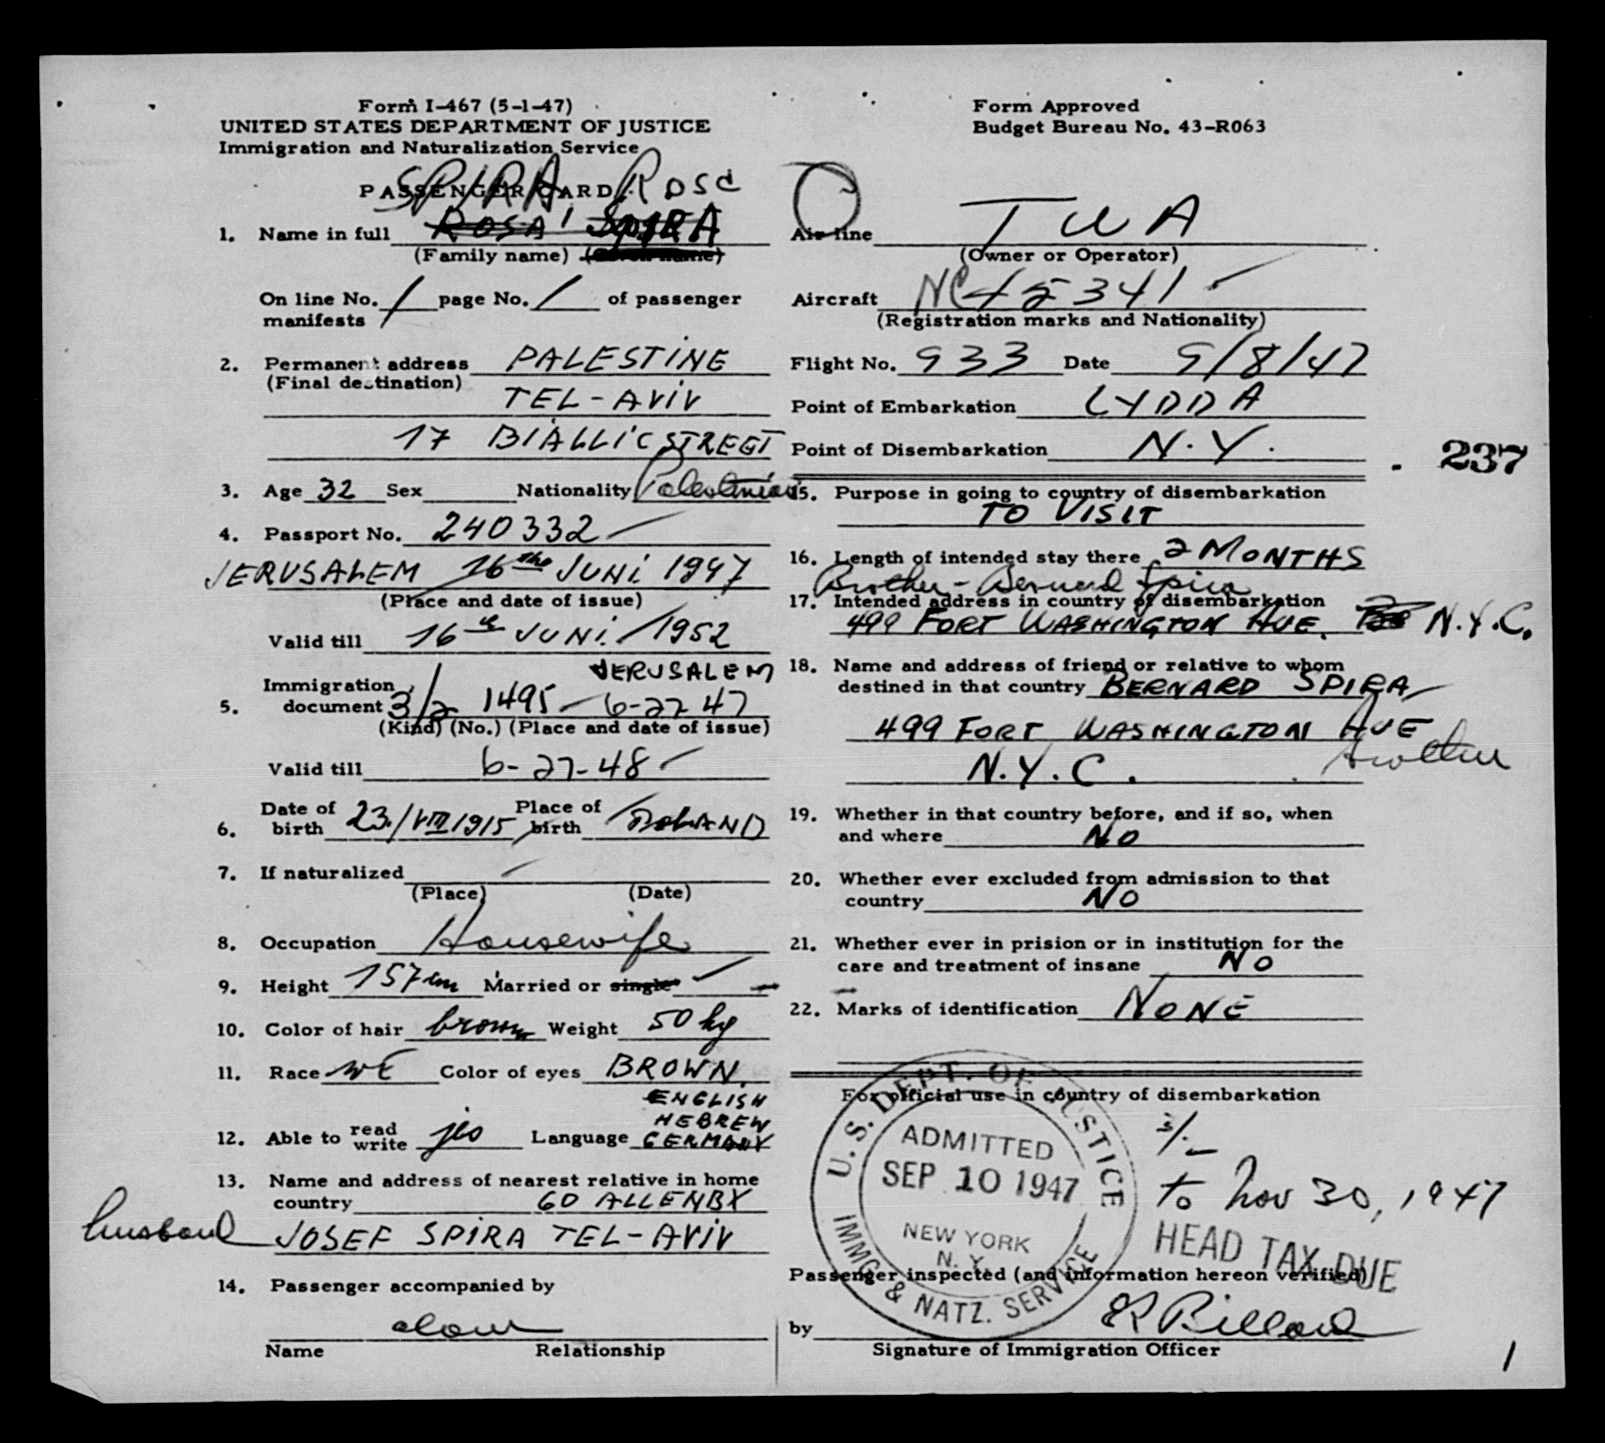 Form I-467 (5-1-47)
UNITED STATES DEPARTMENT OF JUSTICE
Immigration and Naturalization Service
PASSENGER CARD
SPIRA, Rosa
1. Name in full ROSA SPIRA
(Family name) (Given name)
On line No. 1 page No. 1 of passenger
manifests
2. Permanent address PALESTINE
(Final destination)
TEL-AVIV
17 BIALLIC STREET
3. Age 32 Sex Nationality Palestinian
4. Passport No. 240332
JERUSALEM 16 JUNI 1947
(Place and date of issue)
Valid till 16 JUNI. 1952
JERUSALEM
Immigration
5. document 3/2 1495 6-27 47
(Kind) (No.) (Place and date of issue)
Valid till 6-27-48
Date of Place of
6. birth 23./VIII 1915 birth POLAND
7. If naturalized
(Place) (Date)
8. Occupation Housewife
9. Height 157 cm Married or single
10. Color of hair brown Weight 50 kg
11. Race Color of eyes BROWN.
ENGLISH
HEBREW
12. Able to read write yes Language GERMANY
13. Name and address of nearest relative in home
country 60 ALLENBY
husband JOSEF SPIRA TEL-AVIV
14. Passenger accompanied by
alone
Name Relationship
Form Approved
Budget Bureau No. 43-R063
Air line TWA
(Owner or Operator)
Aircraft NC 45341
(Registration marks and Nationality)
Flight No. 933 Date 9/8/47
Point of Embarkation LYDDA
Point of Disembarkation N.Y.
237
15. Purpose in going to country of disembarkation
TO VISIT
16. Length of intended stay there 2 MONTHS
Brother - Bernard Spira
17. Intended address in country of disembarkation
499 FORT WASHINGTON AVE. N.Y.C.
18. Name and address of friend or relative to whom
destined in that country BERNARD SPIRA
499 FORT WASHINGTON AVE
N.Y.C. brother
19. Whether in that country before, and if so, when
and where NO
20. Whether ever excluded from admission to that
country NO
21. Whether ever in prision or in institution for the
care and treatment of insane NO
22. Marks of identification NONE
For official use in country of disembarkation
U.S. DEPT. OF JUSTICE
ADMITTED
SEP 10 1947
NEW YORK
N. Y.
IMMG. & NATZ. SERVICE
to Nov 30, 1947
HEAD TAX DUE
Passenger inspected (and information hereon verified)
by
Signature of Immigration Officer
1